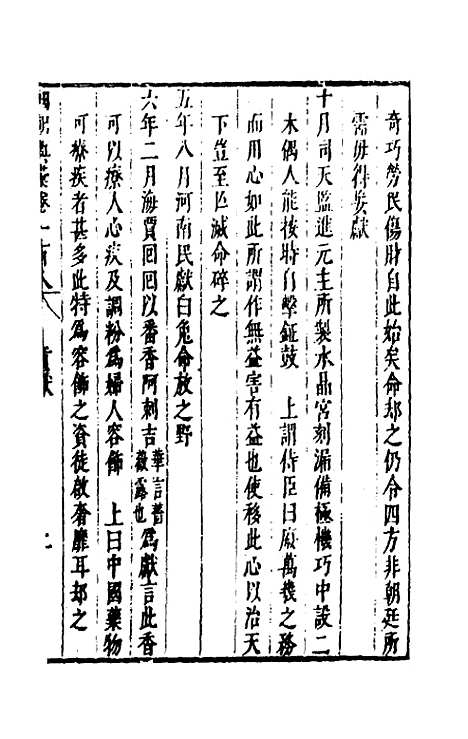 奇巧勞民傷財自此始矣命却之仍令四方非朝廷所
需毋得妄獻
十月司天監進元主所製水晶宮刻漏備極機巧中設二
木偶人能按時自擊鉦鼓　上謂侍臣曰廢萬機之務
而用心如此所謂作無益害有益也使移此心以治天
下豈至亡滅命碎之
五年八月河南民獻白兔命放之野
六年二月海賈回回以番香阿剌吉華言薔薇露也為獻言此香
可以療人心疾及調粉為婦人容飾　上曰中國藥物
可療疾者甚多此特為容飾之資徒啟奢靡耳却之
卷一百八
貢獻
七